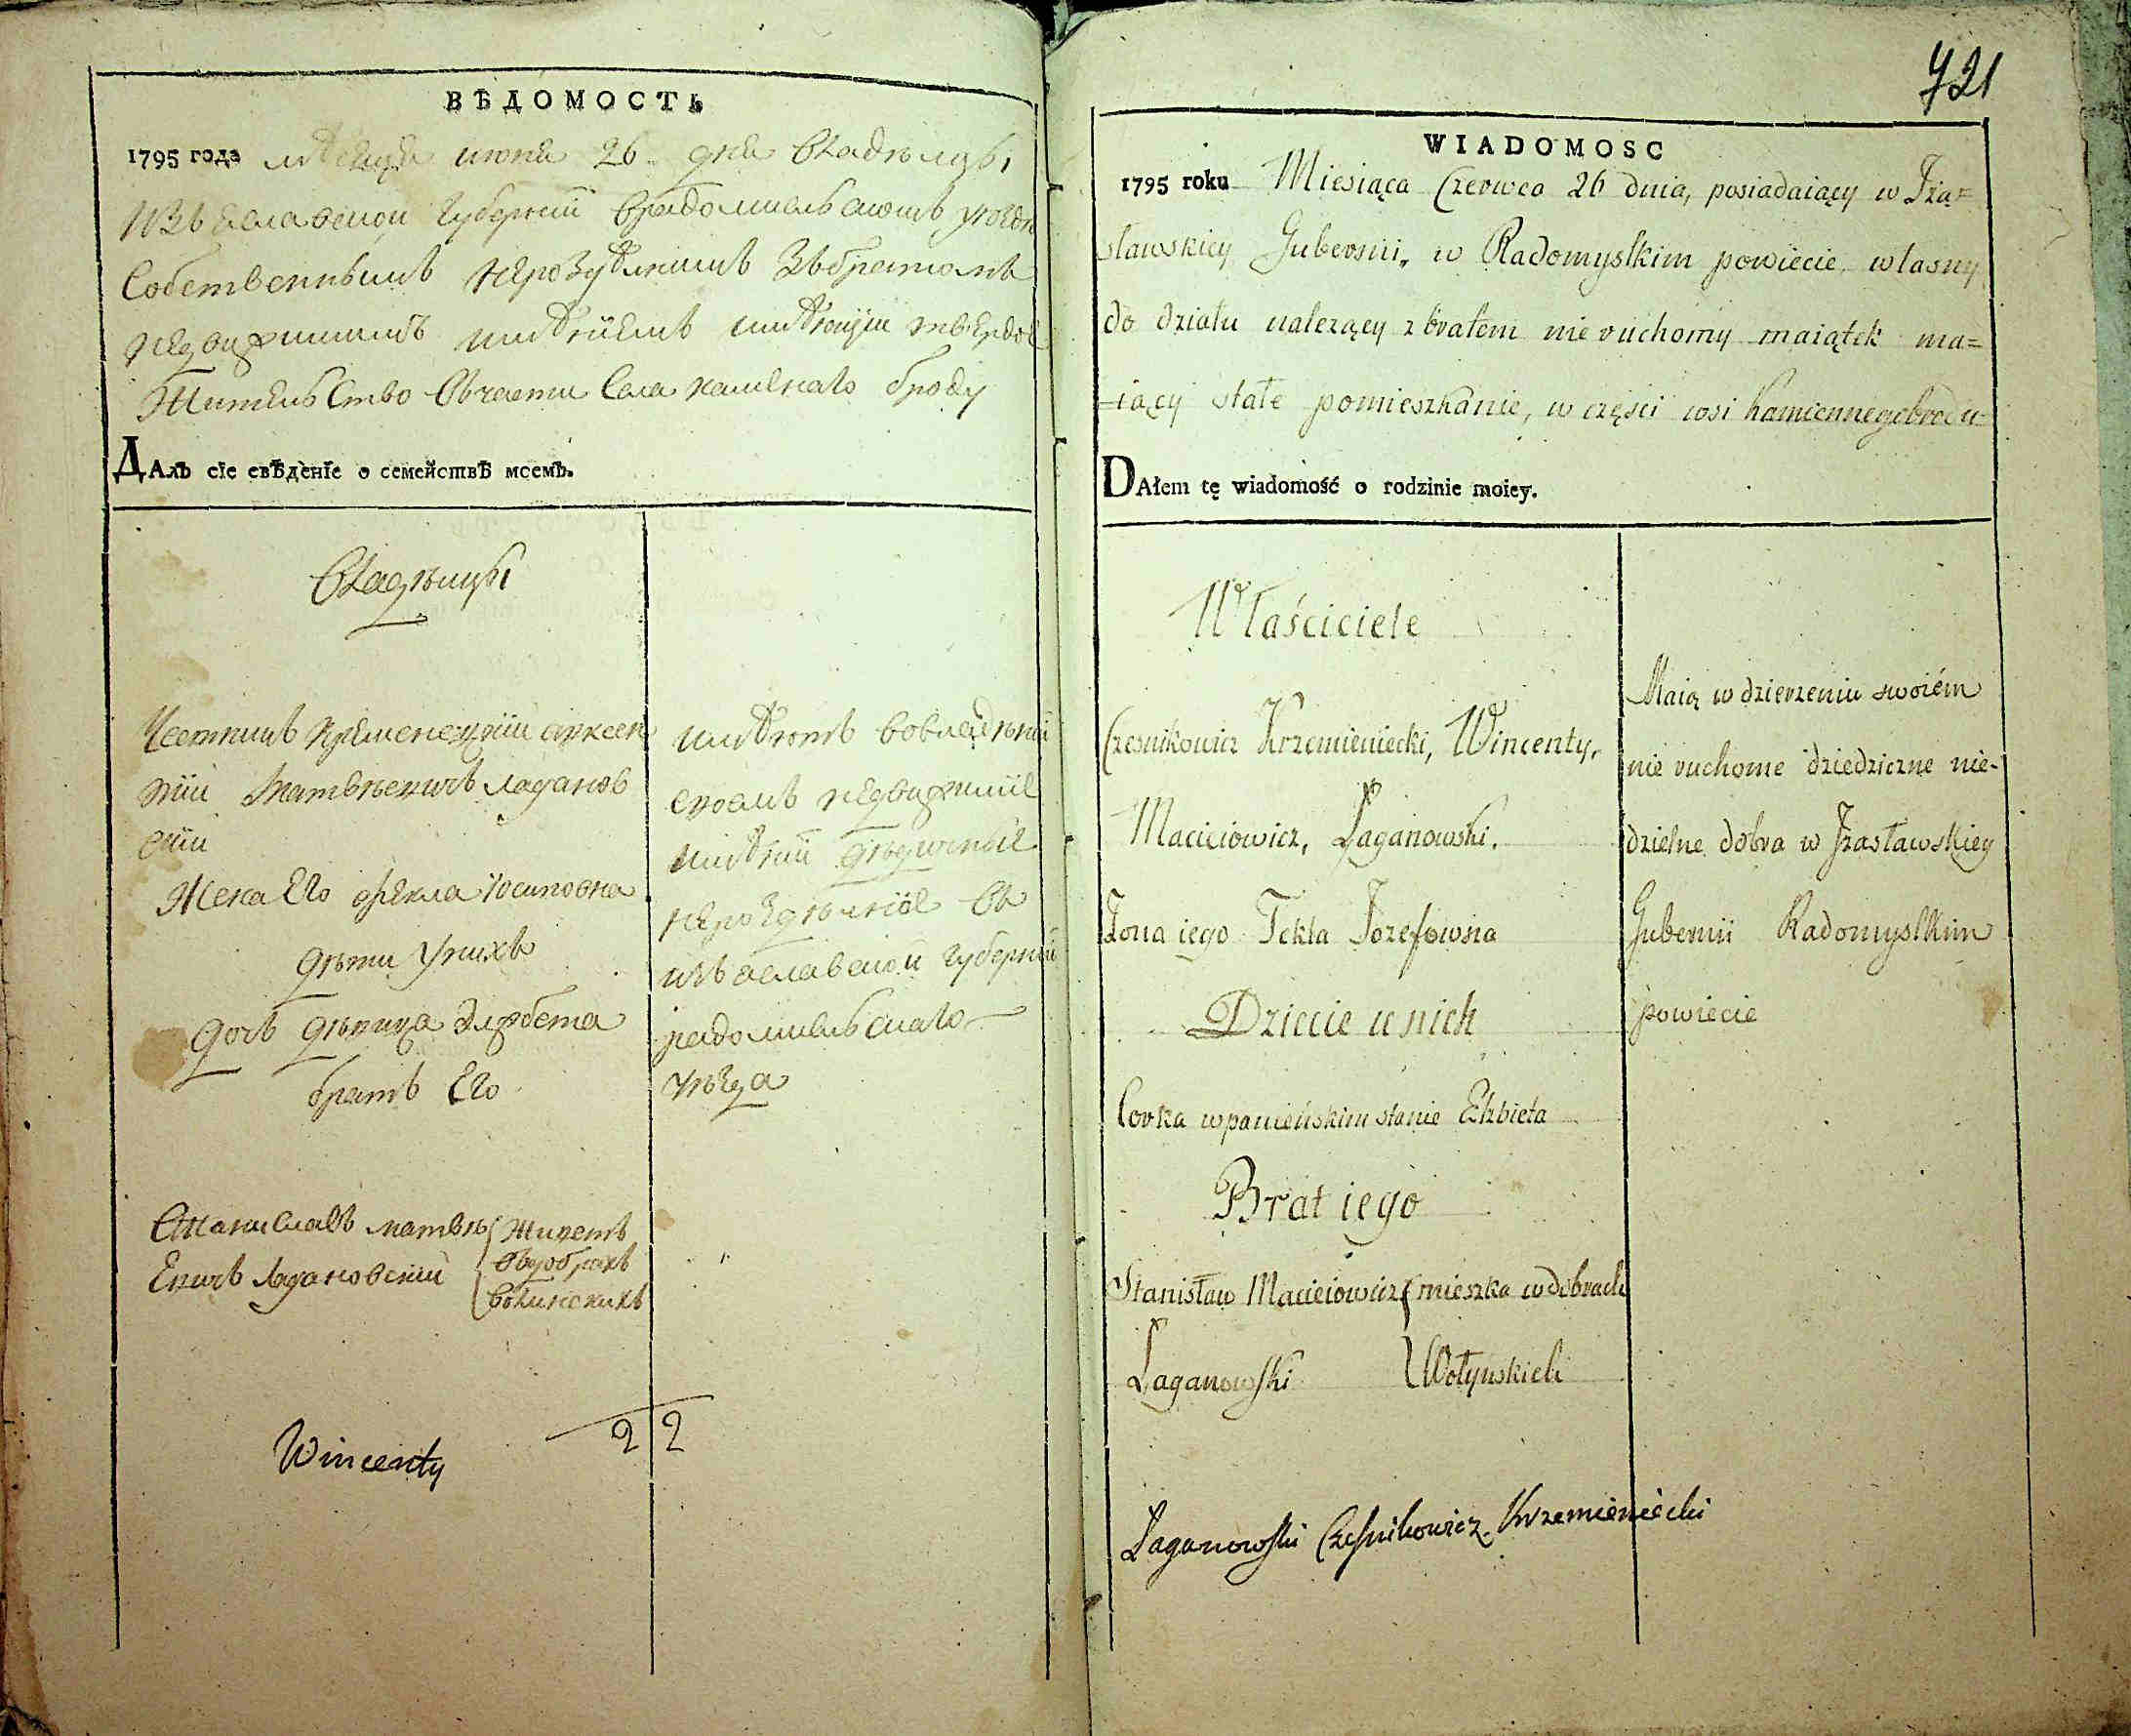 ВѢДОМОСТЬ
1795 года мѣсяца июня 26 дня владѣлцы
изъяславской губернии врадомысльскомъ уезде
собственнымъ неразделнимъ збратомъ
недвижимимъ имѣнiемъ имѣющiи твердое
жительство вчасти села каменаго броду
ДАлъ сїе свѣденїе о семействѣ моемъ.
владѣлцы
Чесникъ кременецкiи
Матвѣевичъ лагановъ
скiи
Жена Его фекла Iосиповна
дѣти унихъ
дочь дѣвица Элжбета
братъ Его
Станиславъ матвѣ живетъ
Евичъ лагановскiй вдобрахъ
волинскихъ
имѣютъ вовладѣнiи
своемъ недвижимiе
имѣнiи дѣдичныe
нероздѣлнiе въ
изъяславской губернiи
радомысльскаго
уѣзда
2 2
Wincenty
721
WIADOMOSC
1795 roku Miesiąca Czerwca 26 dnia, posiadaiący w Iza=
sławskiey Gubernii, w Radomyslkim powiecie, własny
do działu należący z bratem nie ruchomy maiątek ma=
=iący stałe pomieszkanie, w części wsi Kamiennegobrodu
DAłem tę wiadomość o rodzinie moiey.
Właściciele
Czesnikowicz Krzemieniecki, Wincenty,
Macieiowicz, Łaganowski.
Żona iego Tekla Jozefowna
Dziecie u nich
Corka w panieńskim stanie Elżbieta
Brat iego
Stanisław Macieiowicz mieszka w dobrach
Łaganowski Wołynskich
Maią w dzierzeniu swoiém
nie ruchome dziedziczne nie-
dzielne dobra w Izasławskiey
Gubernii Radomyslkim
powiecie
Łaganowski Czesnikowicz Krzemieniecki